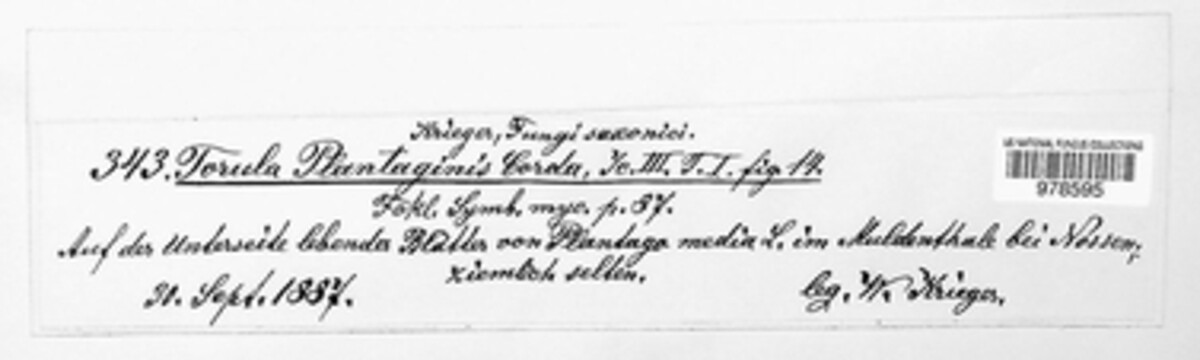 Krieger, Fungi saxonici.
343. Torula Plantaginis Corda, Jc. III. T. I. fig. 14.
US NATIONAL FUNGUS COLLECTIONS
978595
Fckl. Symb. myc. p. 87.
Auf der Unterseite lebender Blätter von Plantago media L. im Muldenthale bei Nossen;
ziemlich selten.
30. Sept. 1887.
leg. W. Krieger.